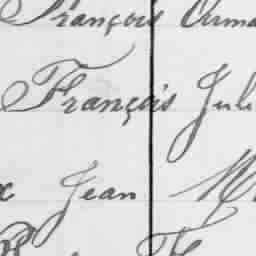 François Arma
François Jul
x Jean M